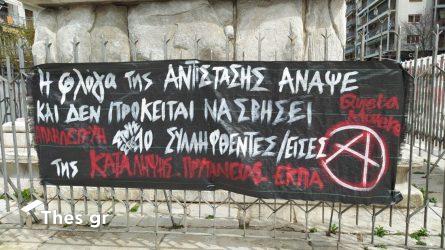 Η φλόγα της ΑΝΤΙΣΤΑΣΗΣ ΑΝΑΨΕ
ΚΑΙ ΔΕΝ ΠΡΟΚΕΙΤΑΙ ΝΑ ΣΒΗΣΕΙ
ΑΛΛΗΛΕΓΓΥΗ ΣΤΟΥΣ 10 ΣΥΛΛΗΦΘΕΝΤΕΣ/ΕΙΣΕΣ
της ΚΑΤΑΛΗΨΗΣ ΠΡΥΤΑΝΕΙΑΣ ΕΚΠΑ
Α
Thes gr